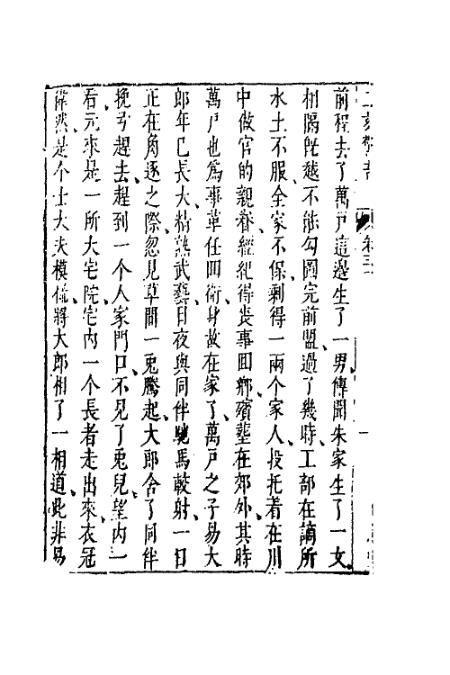 二刻驚奇 卷三十
前程去了萬戶這邊生了一男傳聞朱家生了一女
相隔旣遠不能勾圖完前盟過了幾時工部在謫所
水土不服全家不保剩得一兩个家人投托着在川
中做官的親眷經紀得喪事回鄉殯塟在郊外其時
萬戶也爲事革任回衛身故在家了萬戶之子易大
郎年已長大精熟武藝日夜與同伴馳馬較射一日
正在角逐之際忽見草間一兎騰起大郎舍了同伴
挽弓趕去趕到一个人家門口不見了兎兒望內一
看元來是一所大宅院宅內一个長者走出來衣冠
偉然是个士大夫模樣將大郎相了一相道此非易